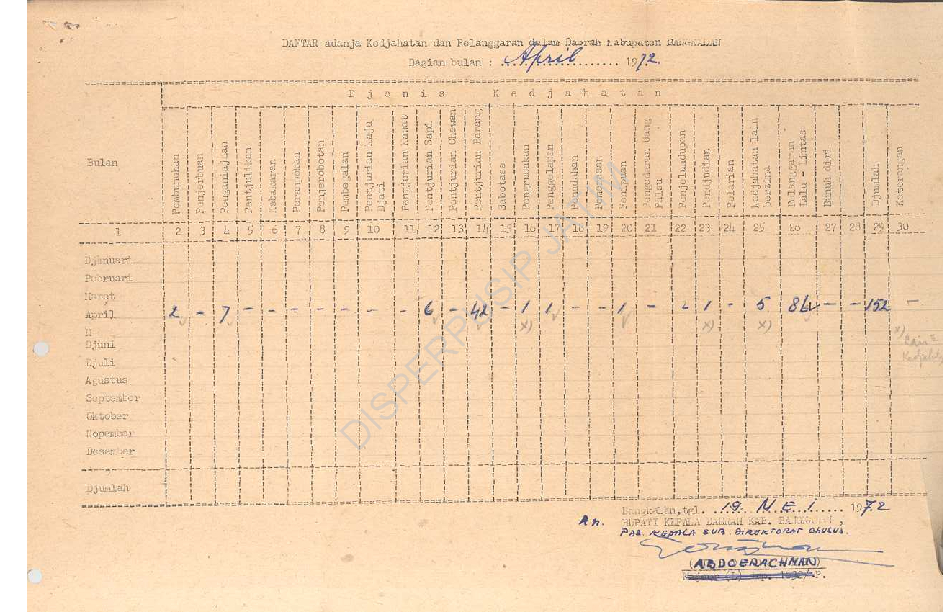 DAFTAR adanja Kedjahatan dan Pelanggaran dalam Daerah Kabupaten BANGKALAN
Bagian bulan : April 1972
Djenis Kedjahatan
Bulan
Pembunuhan
Penganiajaan
Pentjulikan
Kebakaran
Perampokan
Penjerobotan
Pembegalan
Pentjurian Kaju Djati
Pentjurian Kawat
Pentjurian Sapi
Pentjurian Chewan
Pentjurian Barang
Sabotase
Penggelapan
Penipuan
Penjeludupan
Perdjudian
Kedjahatan lain
Pelanggaran Lalu - Lintas
Bunuh diri
Djumlah
Keterangan
1 2 3 4 5 6 7 8 9 10 11 12 13 14 15 16 17 18 19 20 21 22 23 24 25 26 27 28 29 30
Djanuari
Pebruari
Maret
April 2 - 7 - - - - - - - 6 - 42 - 1 1 - - 1 - - 1 - 5 - - 152 -
x) x) x)
x)
M
Djuni
Djuli
Agustus
September
Oktober
Nopember
Desember
Djumlah
Bangkalan, tgl. 19 MEI 1972
A.n. BUPATI KEPALA DAERAH KAB. BANGKALAN,
KEPALA SUB DIREKTORAT
(ABDOERACHMAN)
DISPERPUSIP JATIM